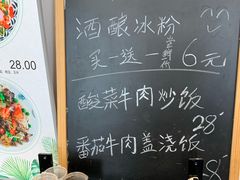 酒酿冰粉
买一送一 6元
28.00
酸菜牛肉炒饭
28
番茄牛肉盖浇饭
28